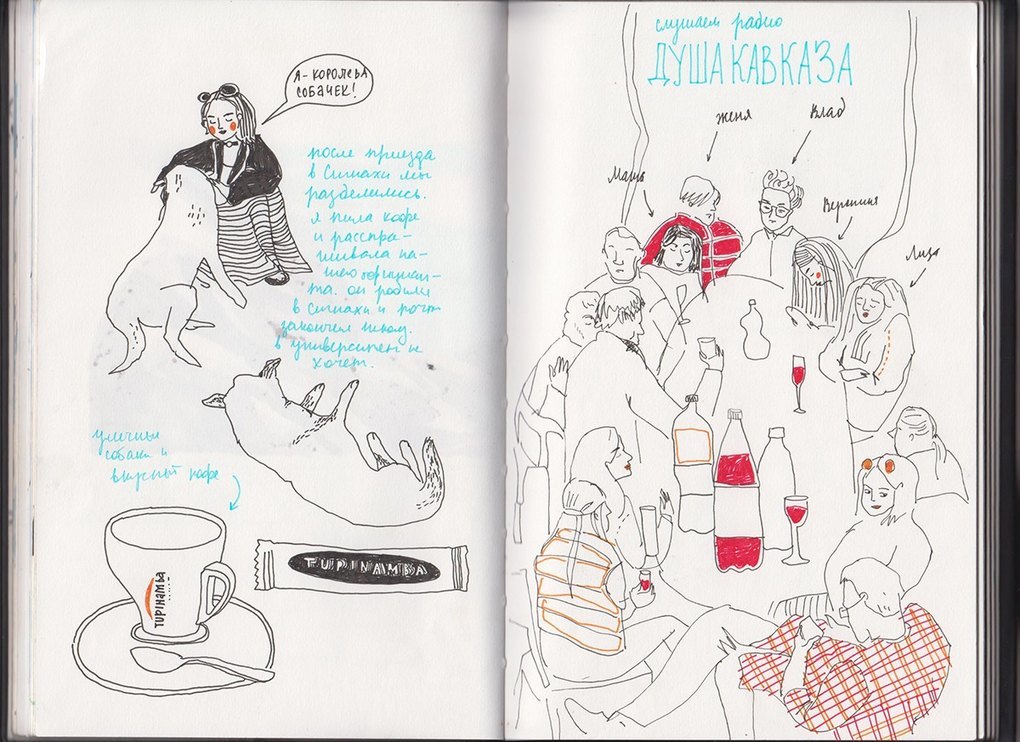 Я - КОРОЛЕВА
СОБАЧЕК!
после приезда
в Сигнахи мы
разделились.
я пила кофе
и расспра-
шивала на-
шего официан-
та. он родился
в Сигнахи и
закончил школу.
в университет не
хочет.
уличные
собаки и
вкусный кофе
TUPINAMBA
TUPINAMBA
слушаем радио
ДУША КАВКАЗА
Женя
Влад
Маша
Вероника
Лиза